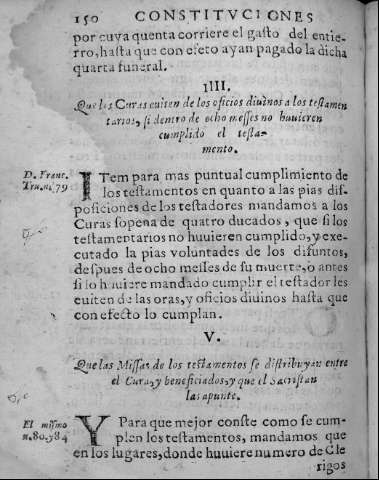 150 CONSTITVCIONES
por cuya quenta corriere el gasto del entie-
rro, hasta que con efeto ayan pagado la dicha
quarta funeral.
IIII.
Que los Curas euiten de los oficios diuinos a los testamen
tarios, si dentro de ocho messes no huuieren
cumplido el testa-
mento.
D. Franc.
Tru. n. 79
ITem para mas puntual cumplimiento de
los testamentos en quanto a las pias dis-
posiciones de los testadores mandamos a los
Curas sopena de quatro ducados, que si los
testamentarios no huuieren cumplido, y exe-
cutado la pias voluntades de los difuntos,
despues de ocho messes de su muerte, o antes
si lo huuiere mandado cumplir el testador les
euiten de las oras, y oficios diuinos hasta que
con efecto lo cumplan.
V.
Que las Missas de los testamentos se distribuyan entre
el Cura, y beneficiados, y que el Sacristan
las apunte.
El mismo
n. 80. y 84
Y Para que mejor conste como se cum-
plen los testamentos, mandamos que
en los lugares, donde huuiere numero de Cle
rigos